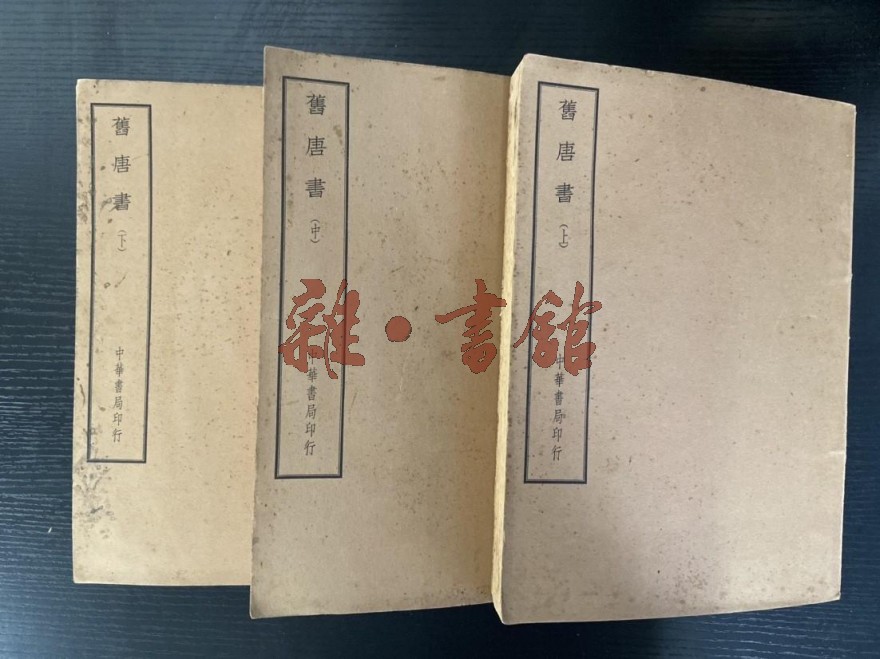 舊唐書(上)
中華書局印行
舊唐書(中)
中華書局印行
舊唐書(下)
中華書局印行
雜·書館